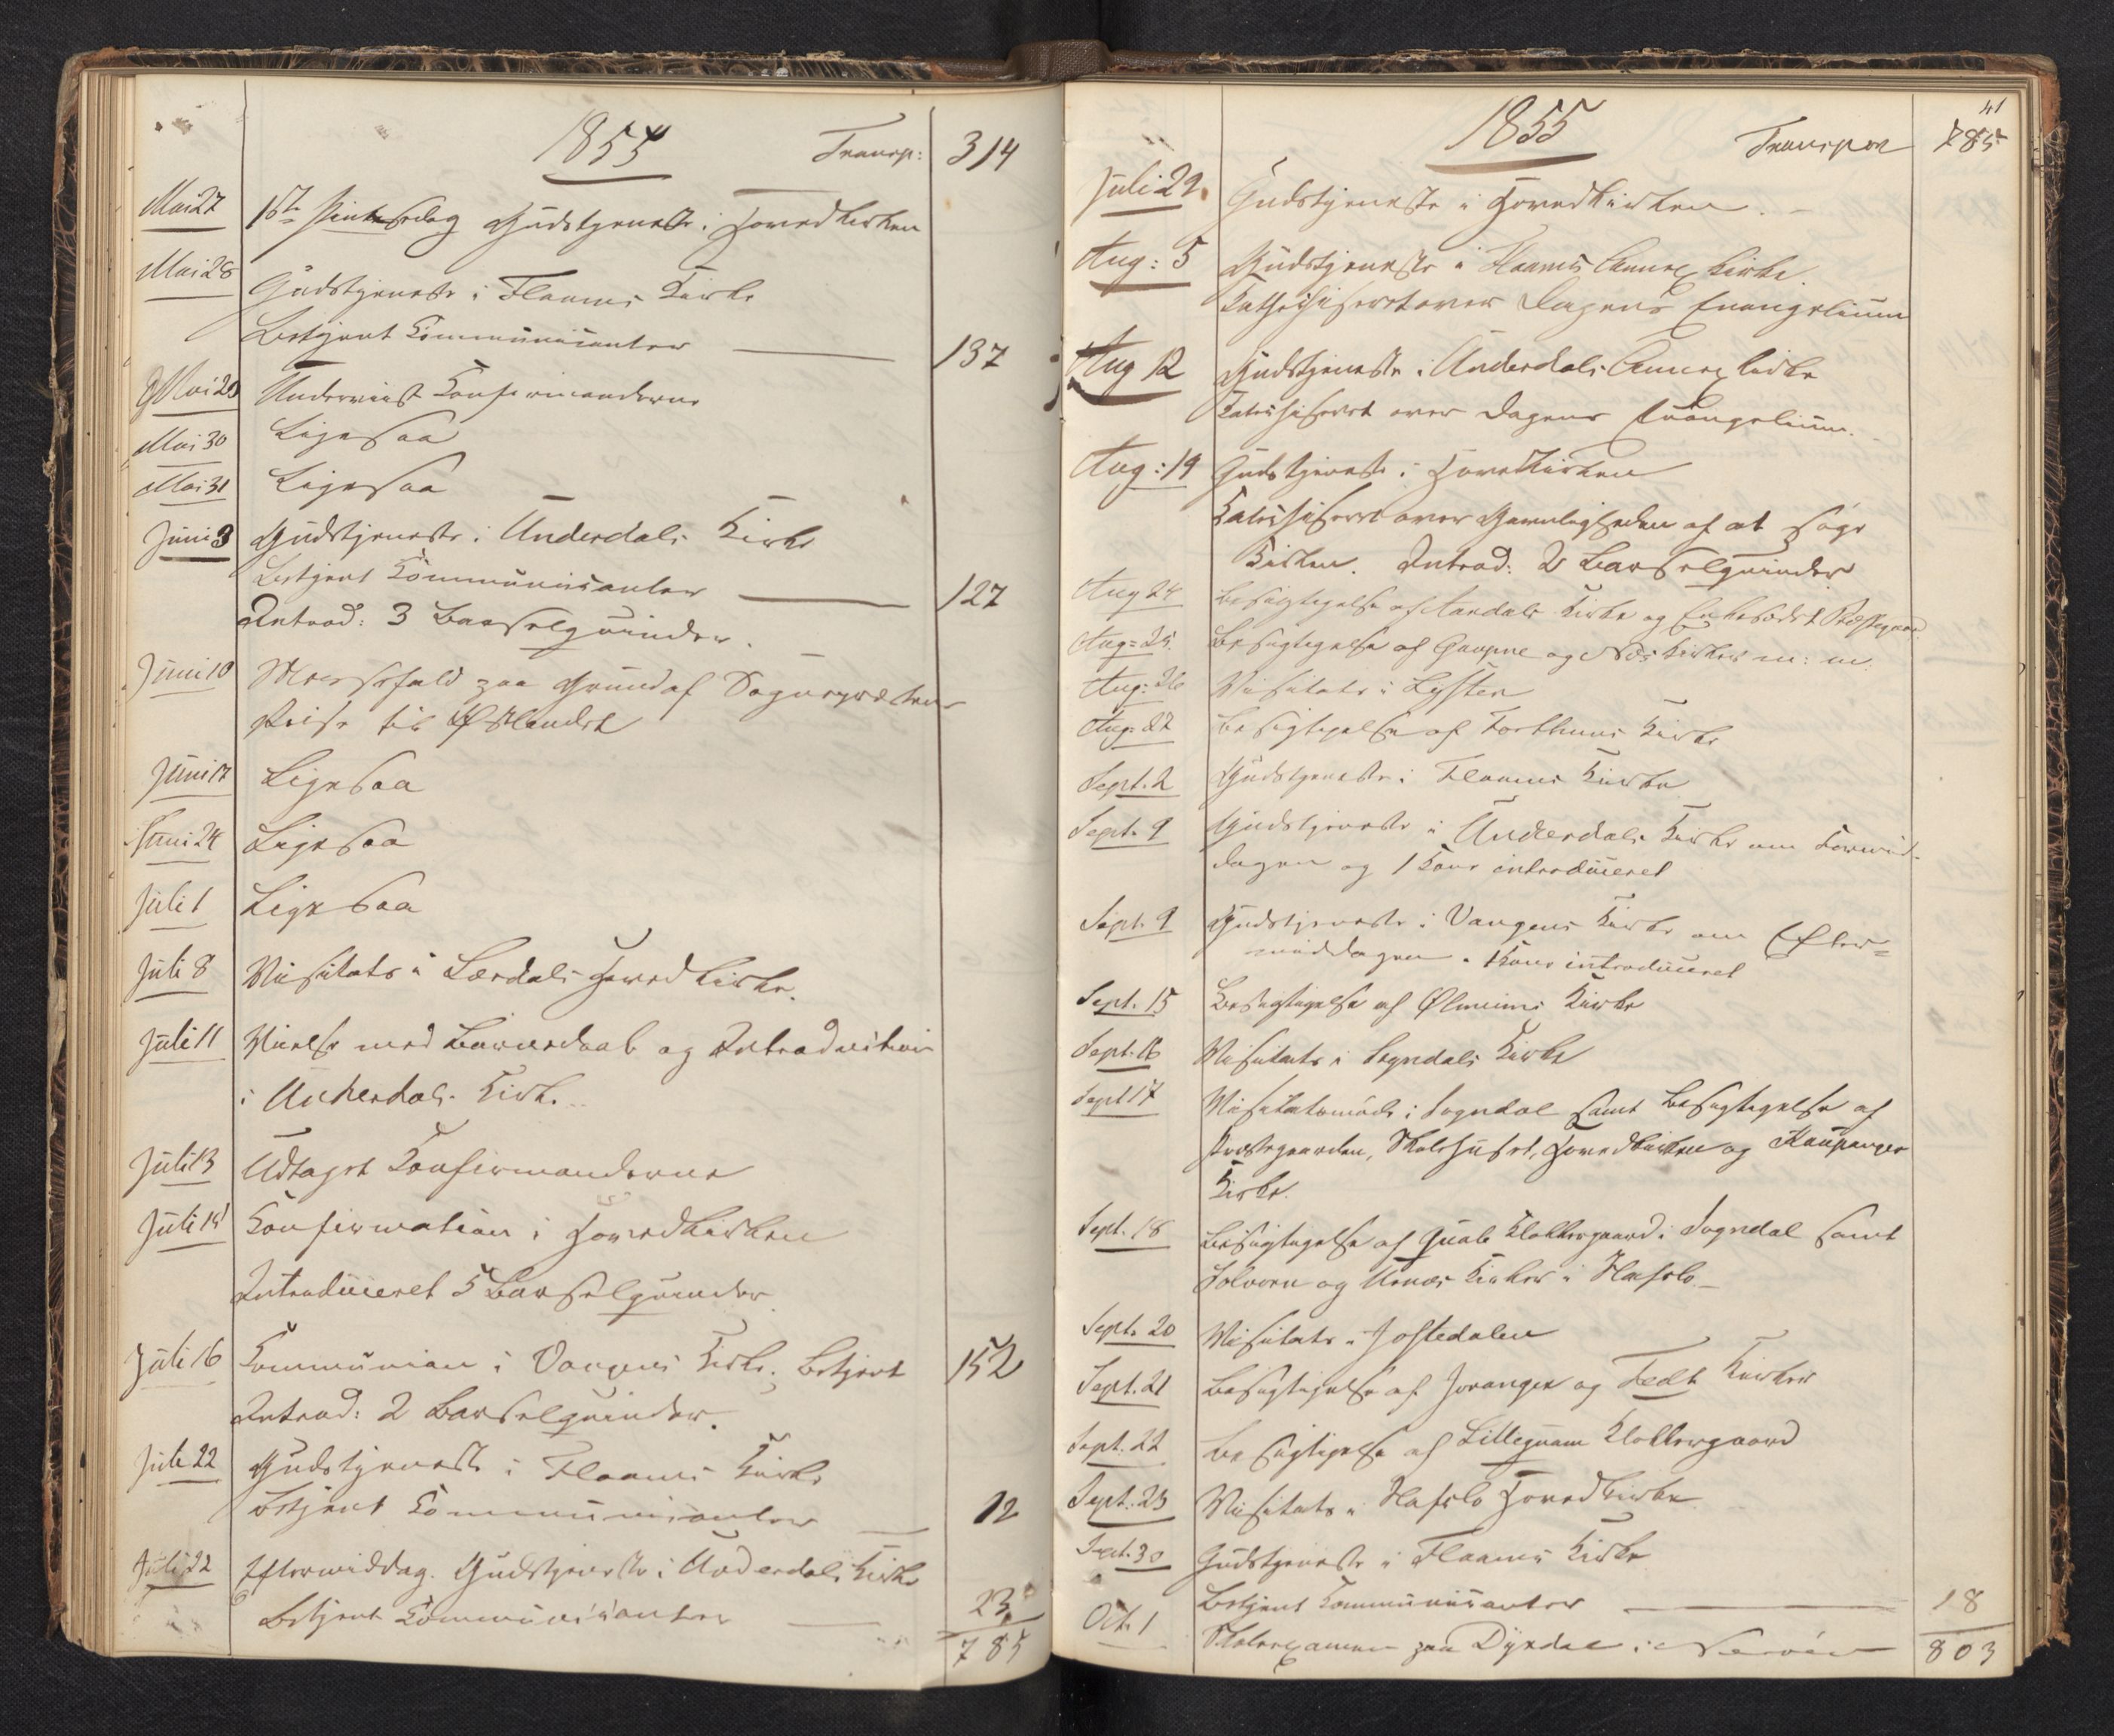 1855
Transp: 314
Mai 27 1ste Pintsedag Gudstjeneste i Hovedkirken
Mai 28 Gudstjeneste i Flaams Kirke
Betjent Communicanter 137
Mai 29 Underviist Confirmanderne
Mai 30 Ligesaa
Mai 31 Ligesaa
Juni 3 Gudstjeneste i Underdals Kirke
Betjent Communicanter 127
Introd: 3 Barselqvinder.
Juni 10 Messefald paa Grund af Sognepræstens
Reise til Østlandet
Juni 17 Ligesaa
Juni 24 Ligesaa
Juli 1 Ligesaa
Juli 8 Visitats i Lærdals Hovedkirke.
Juli 11 Vielse med Barnedaab og Introduction
i Underdals Kirke
Juli 13 Udtaget Confirmanderne
Juli 15 Confirmation i Hovedkirken
Introduceret 5 Barselqvinder
Juli 16 Communion i Vangens Kirke. Betjent 152
Introd: 2 Barselqvinder.
Juli 22 Gudstjeneste i Flaams Kirke
Betjent Communicanter 12
Juli 22 Eftermiddag. Gudstjeneste i Underdals Kirke
Betjent Communicanter 23
785
41
1855
Transport 785
Juli 29 Gudstjeneste i Hovedkirken.
Aug: 5 Gudstjeneste i Flaams Annex Kirke.
Cathechiseret over Dagens Evangelium
Aug 12 Gudstjeneste i Underdals Annexkirke
Catechiseret over Dagens Evangelium.
Aug: 19 Gudstjeneste i Hovedkirken
Catechiseret over Gavnligheden af at søge
Kirken. Introd: 2 Barselqvinder
Aug 24 Besigtigelse af Aardals Kirke og Enkesædet
Aug: 25. Besigtigelse af Gaupne og Næs Kirker m: m:
Aug: 26 Visitats i Lyster
Aug: 27 Besigtigelse af Forthuns Kirke
Sept. 2 Gudstjeneste i Flaams Kirke
Sept. 9 Gudstjeneste i Underdals Kirke om Formid-
dagen og 1 Kone introduceret
Sept. 9 Gudstjeneste i Vangens Kirke om Efter=
middagen. 1 Kone introduceret
Sept. 15 Besigtigelse af Ølmeims Kirke
Sept. 16 Visitats i Sogndals Kirke
Sept 17 Visitatsmøde i Sogndal samt Besigtigelse af
Præstegaarden, Skolehuset, Hovedkirken og Kaupanger
Kirke.
Sept. 18 Besigtigelse af Qvale Klokkergaard i Sogndal samt
Solvorn og Urnæs Kirker i Hafslo
Sept. 20 Visitats i Jostedalen
Sept. 21 Besigtigelse af Joranger og Fedt Kirker
Sept. 22 Besigtigelse af Lilleqvam Klokkergaard
Sept. 23 Visitats i Hafslo Hovedkirke
Sept. 30 Gudstjeneste i Flaams Kirke
Betjent Communicanter 18
Oct. 1 Skoleexamen paa Dyrdal i
803